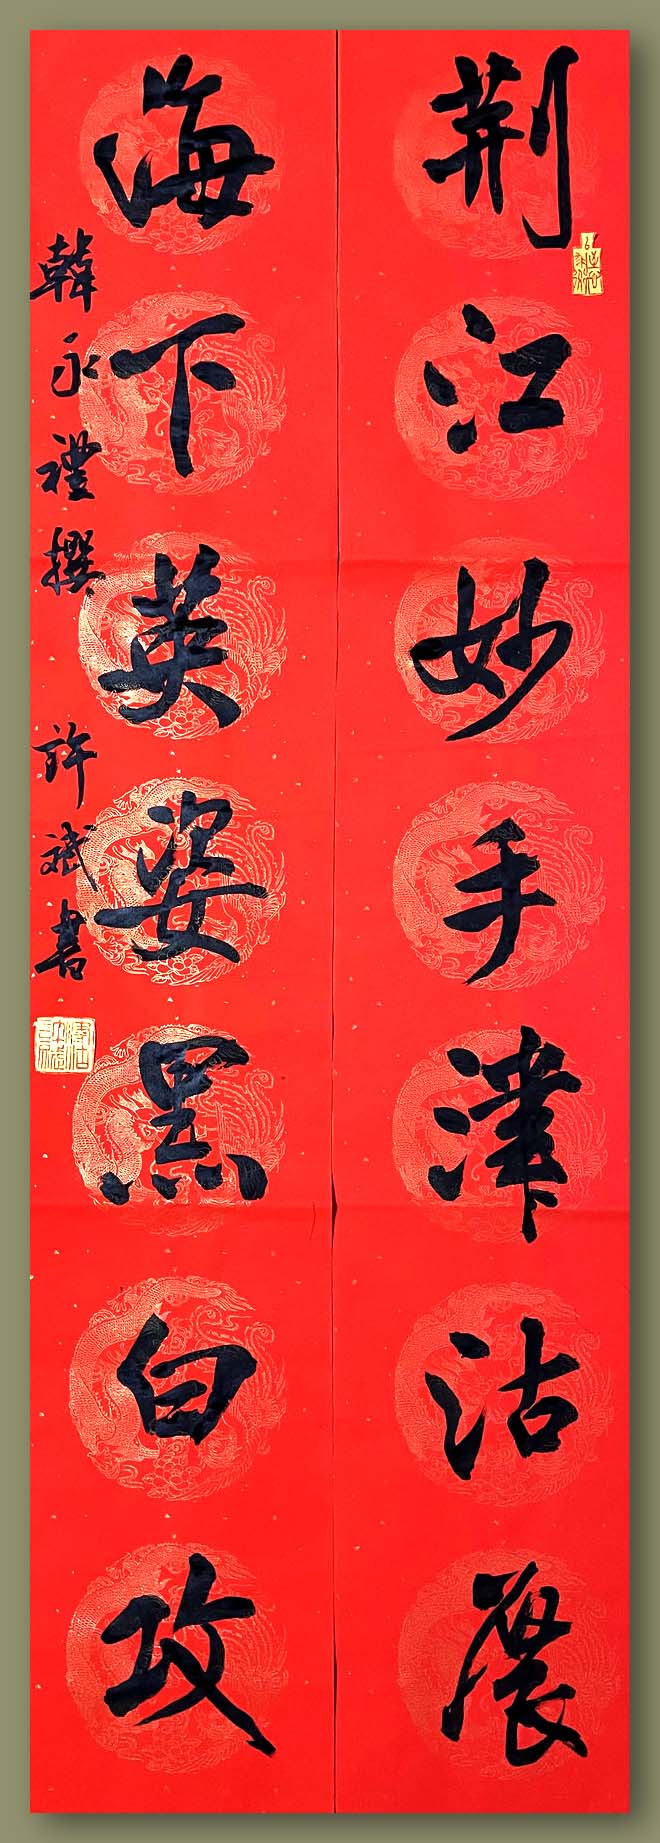 荆江妙手津沽展
海下英姿黑白攻
韓永禮撰 許斌書